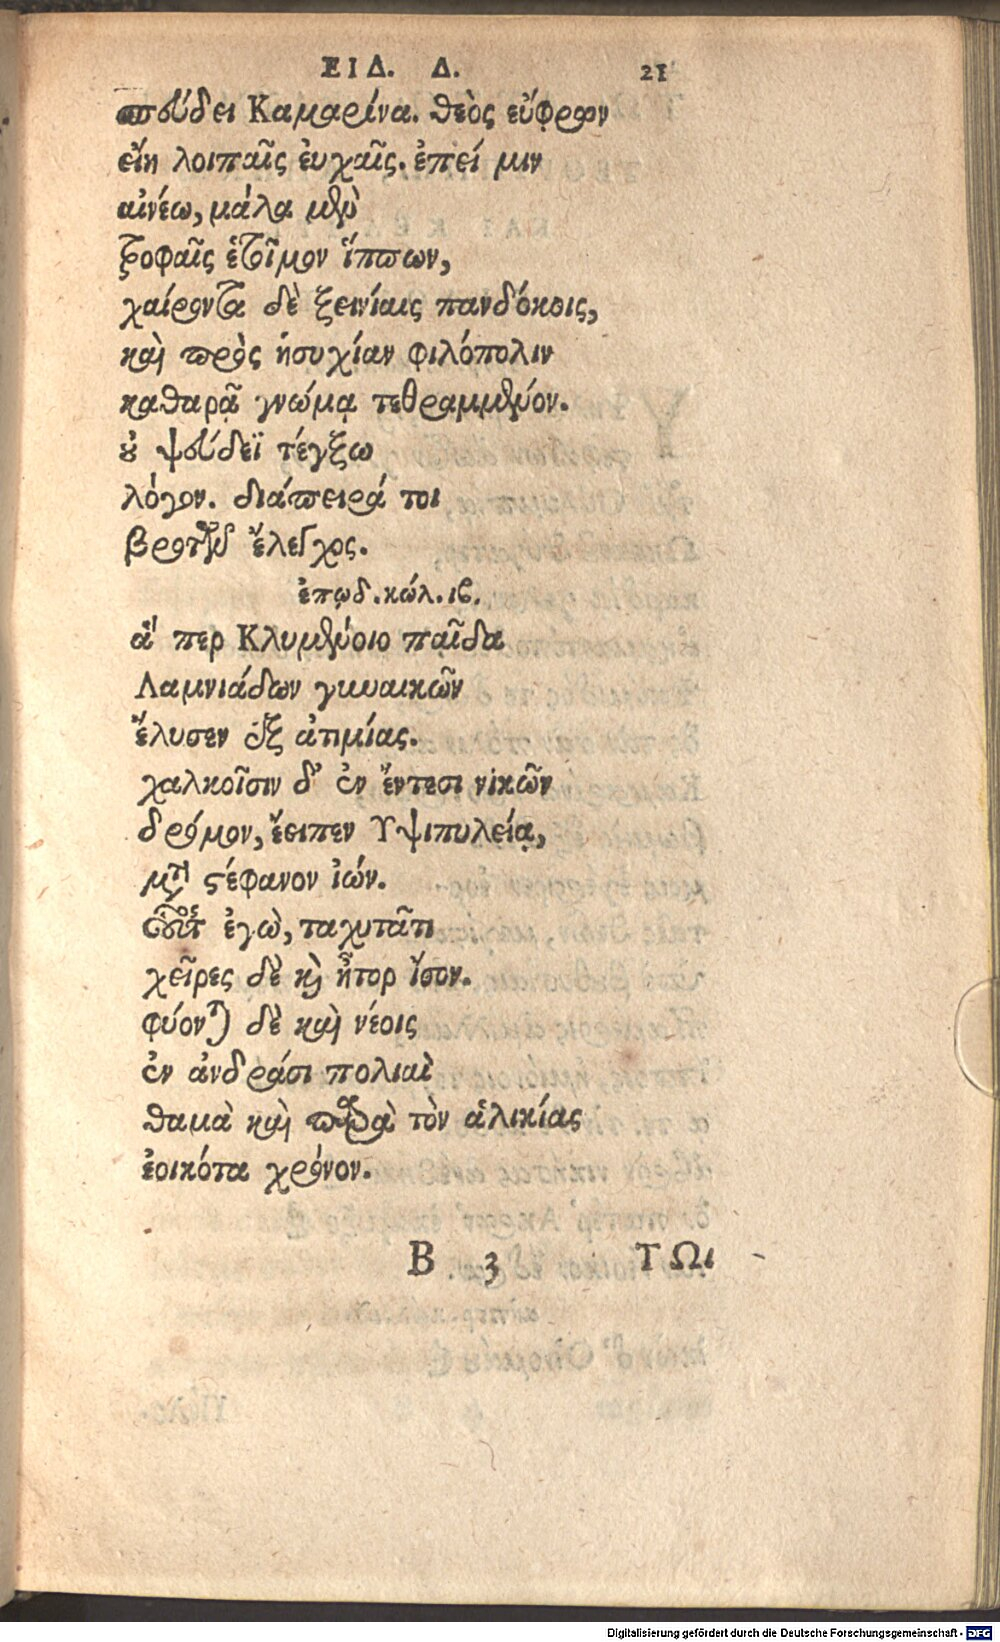 ΕΙΔ. Δ. 21
σπεύδει Καμαρίνα. θεὸς εὔφρων
εἴη λοιπαῖς εὐχαῖς. ἐπεί μιν
αἰνέω, μάλα μὲν
τροφαῖς ἑτοῖμον ἵππων,
χαίροντα δὲ ξεινίαις πανδόκοις,
καὶ πρὸς ἡσυχίαν φιλόπολιν
καθαρᾷ γνώμᾳ τεθραμμένον.
οὐ ψεύδεϊ τέγξω
λόγον. διάπειρά τοι
βροτῶν ἔλεγχος.
ἐπῳδ. κώλ. ιβ.
ἅ περ Κλυμένοιο παῖδα
Λαμνιάδων γυναικῶν
ἔλυσεν ἐξ ἀτιμίας.
χαλκοῖσιν δ' ἐν ἔντεσι νικῶν
δρόμον, ἔειπεν Υψιπυλείᾳ,
μετὰ στέφανον ἰών.
οὗτος ἐγὼ, ταχυτᾶτι
χεῖρες δὲ καὶ ἦτορ ἴσον.
φύονται δὲ καὶ νέοις
ἐν ἀνδράσι πολιαὶ
θαμὰ καὶ παρὰ τὸν ἁλικίας
ἐοικότα χρόνον.
Β 3 ΤΩι
Digitalisierung gefördert durch die Deutsche Forschungsgemeinschaft - DFG